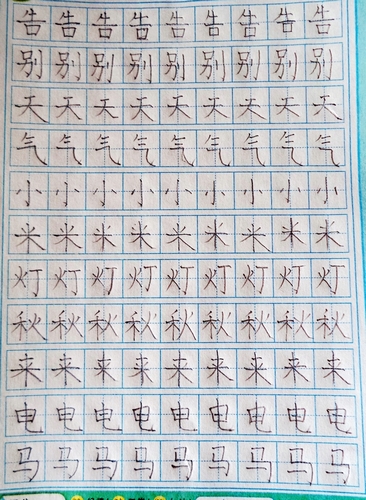 告告告告告告告告告
别别别别别别别别别
天天天天天天天天天
气气气气气气气气气
小小小小小小小小小
米米米米米米米米米
灯灯灯灯灯灯灯灯灯
秋秋秋秋秋秋秋秋秋
来来来来来来来来来
电电电电电电电电电
马马马马马马马马马